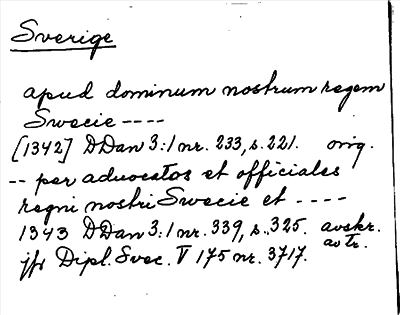 Sverige
apud dominum nostrum regem
Swecie ----
[1342] DDan 3:1 nr. 233, s. 221. orig.
-- per aduocatos et officiales
regni nostri Swecie et ----
1343 DDan 3:1 nr. 339, s. 325. avskr.
jfr Dipl. Svec. V 175 nr. 3717. av tr.